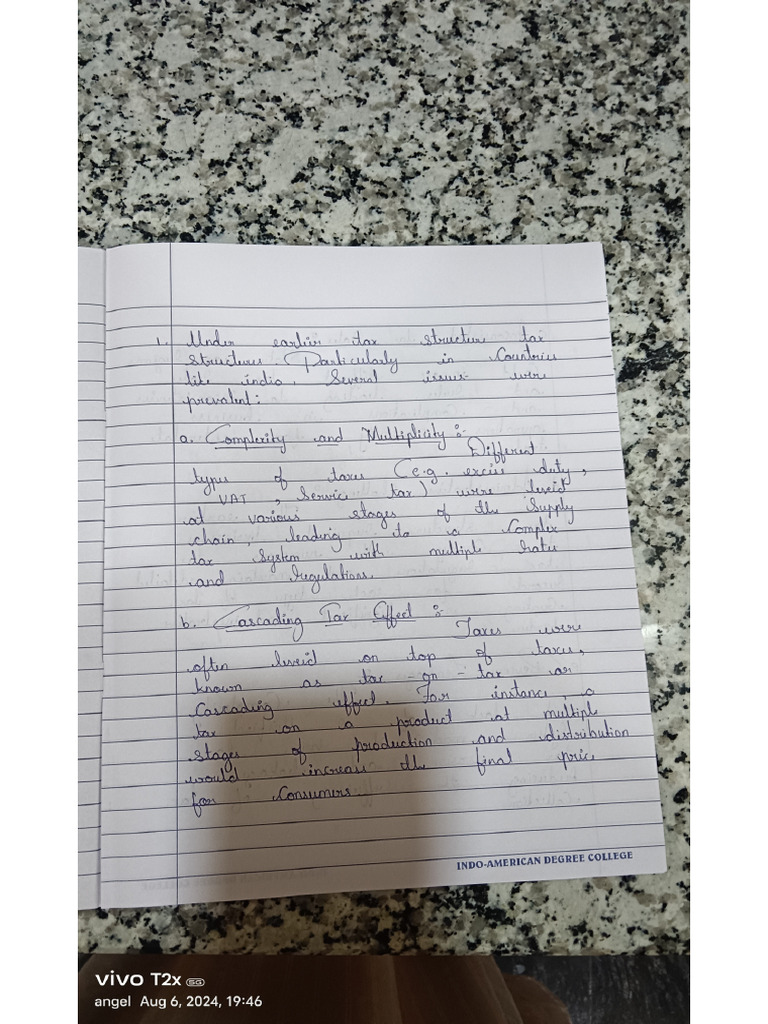 1. Under earlier tax structure tax
structures (Particularly in Countries
like india. Several issues were
prevalent:
a. Complexity and Multiplicity :-
Different
types of taxes (e.g. excise duty,
VAT, Service tax) were leveid
at various stages of the Supply
chain, leading to a Complex
tax System with multiple Rates
and Regulations.
b. Cascading Tax Effect :-
Taxes were
often leveid on top of taxes,
known as tax - on - tax or
Cascading effect. For instance, a
tax on a product at multiple
stages of production and distribution
would increase the final price
for Consumers.
INDO-AMERICAN DEGREE COLLEGE
vivo T2x 5G
angel Aug 6, 2024, 19:46